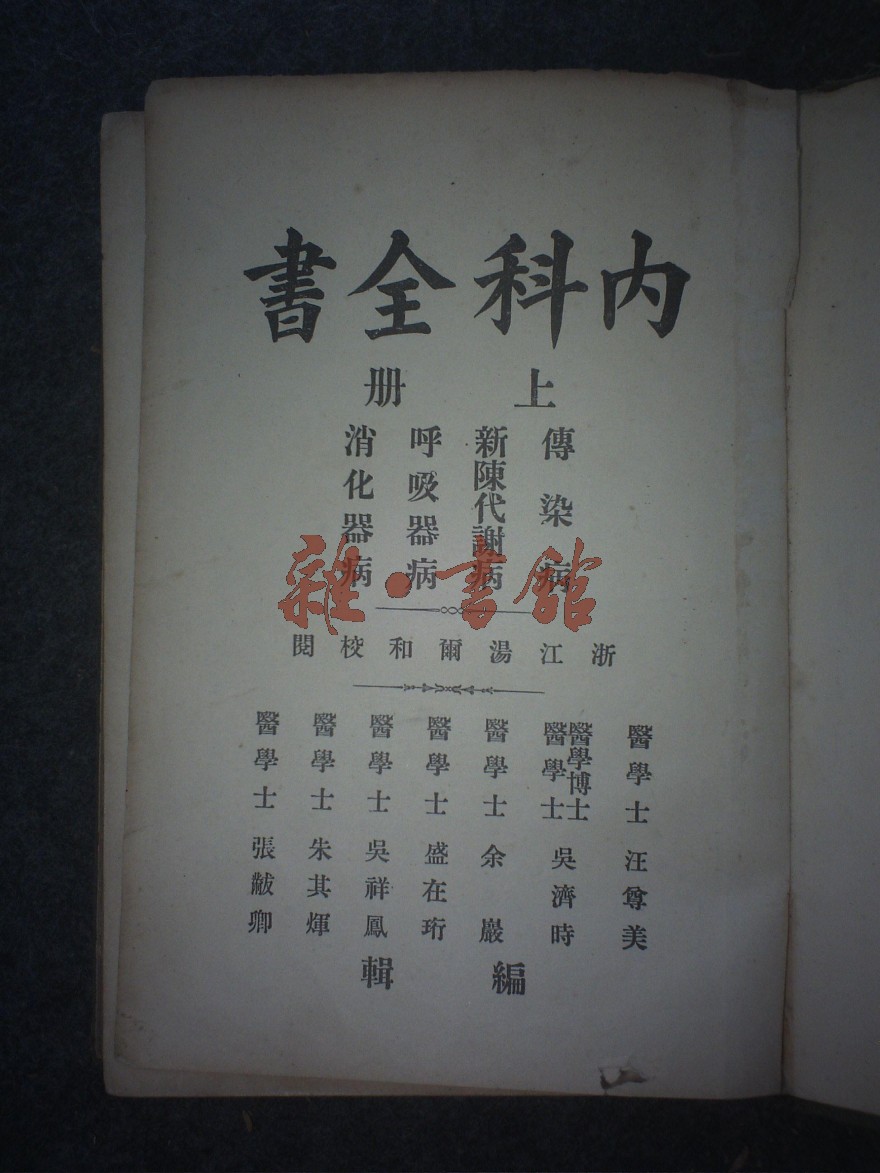 內科全書
上册
傳染病
新陳代謝病
呼吸器病
消化器病
雜·書館
浙江湯爾和校閱
醫學士 汪尊美
醫學博士
醫學士 吳濟時
醫學士 余巖
醫學士 盛在珩
醫學士 吳祥鳳
醫學士 朱其煇
醫學士 張黻卿
編輯